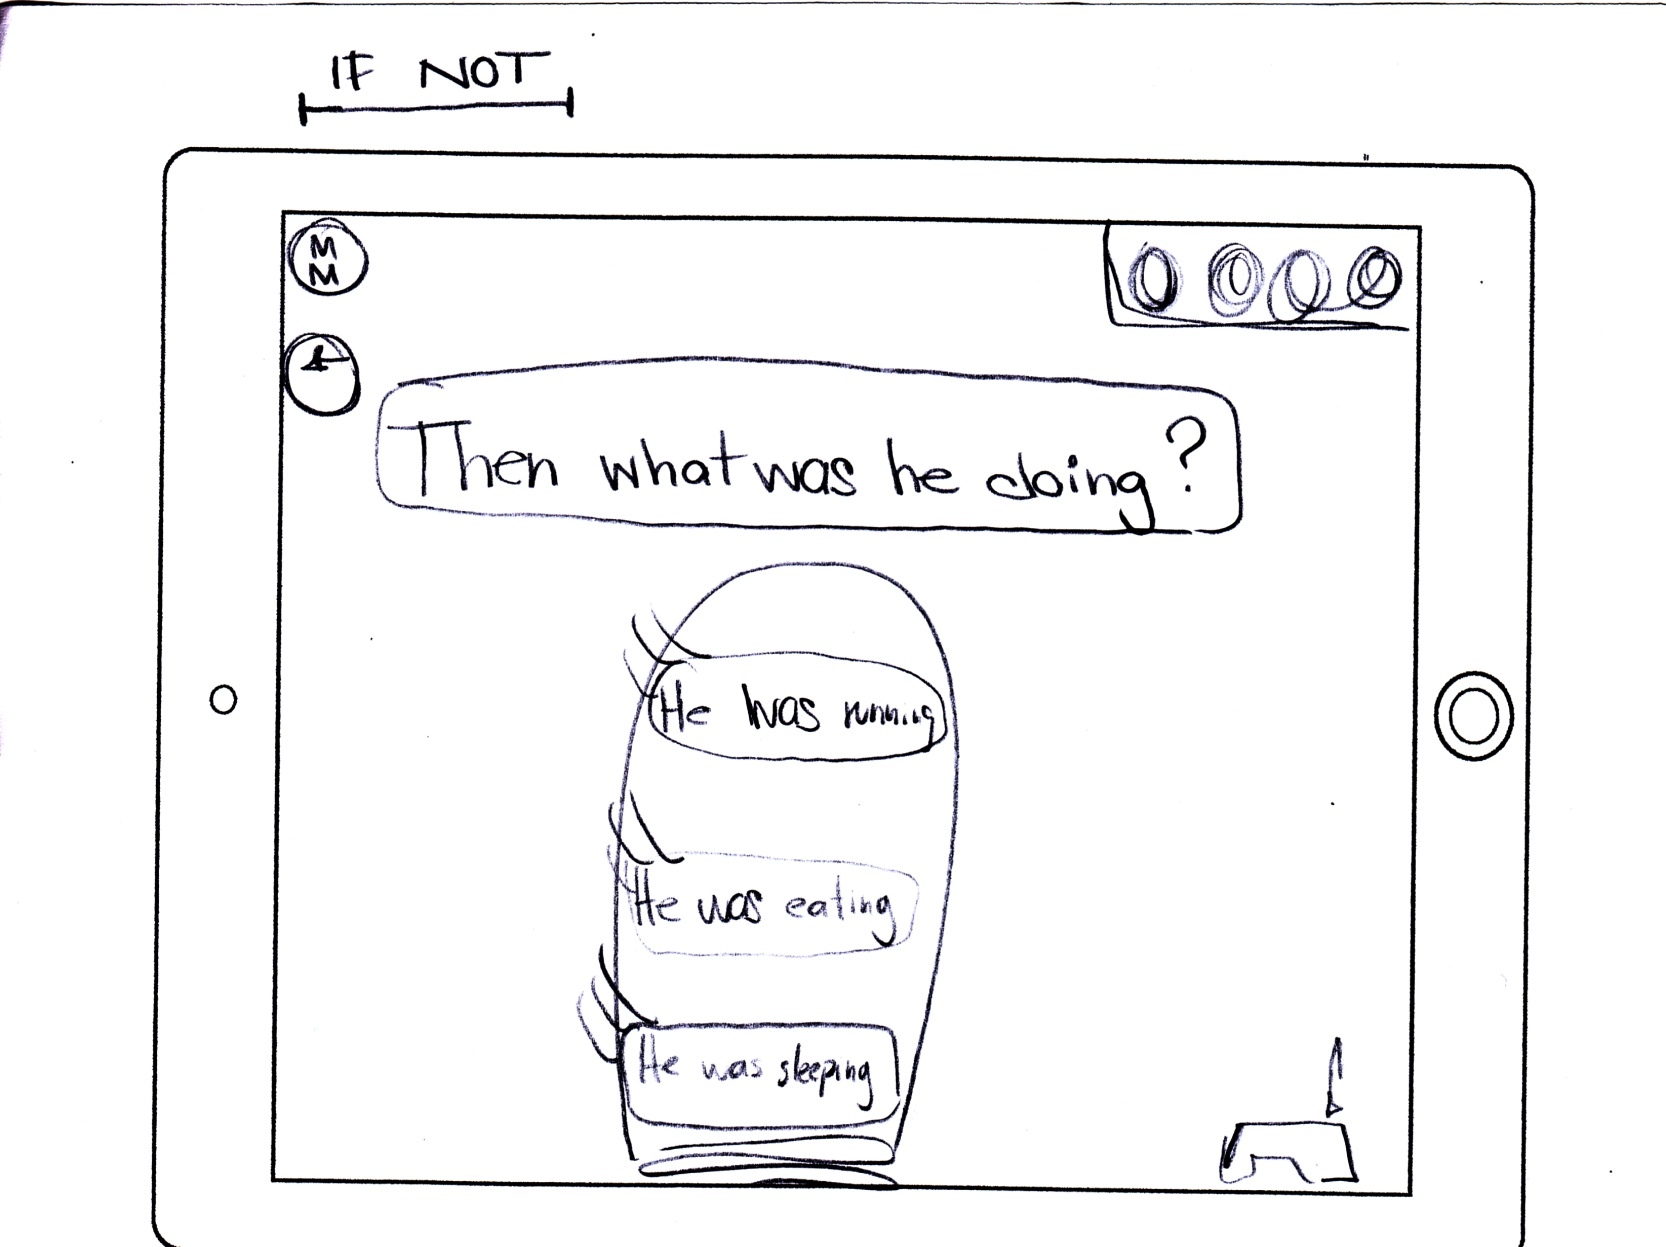 IF NOT
M
M
Then what was he doing?
He was running
He was eating
He was sleeping